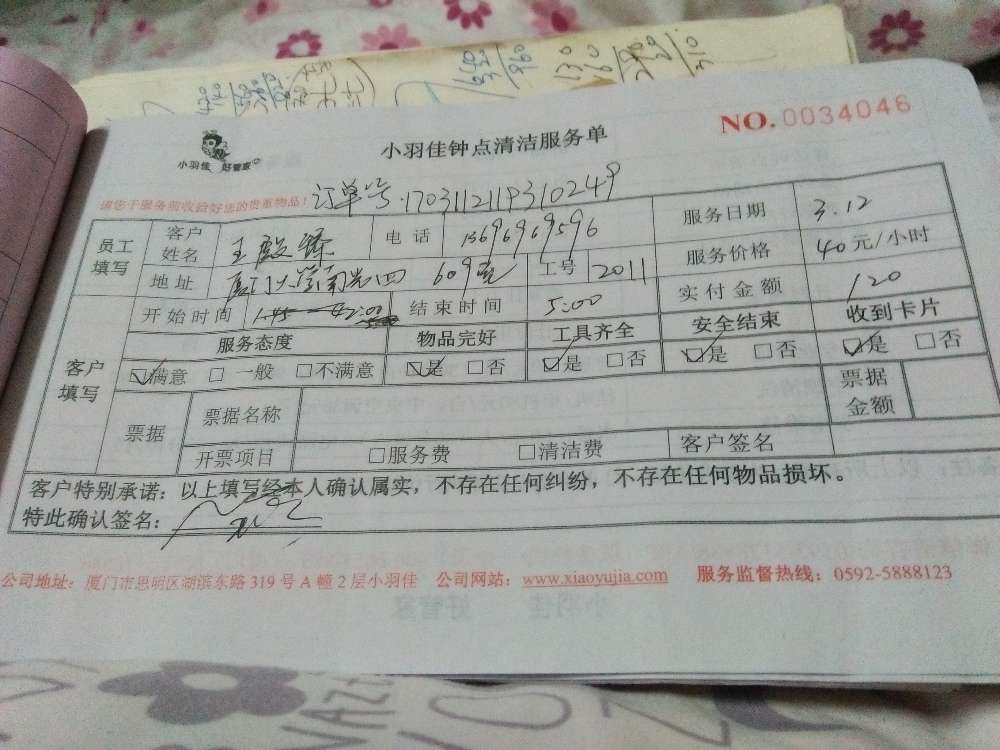 NO.0034046
小羽佳钟点清洁服务单
小羽佳 好管家
请您于服务前收捡好您的贵重物品!
订单号:170311211931024​9
员工填写 客户姓名 王毅 电话 13696969596 服务日期 3.12
地址 厦门大学南光四 609室 工号 2011 服务价格 40元/小时
开始时间 1:45 2:00 结束时间 5:00 实付金额 120
客户填写 服务态度 物品完好 工具齐全 安全结束 收到卡片
☑满意 □一般 □不满意 ☑是 □否 ☑是 □否 ☑是 □否 ☑是 □否
票据 票据名称 票据金额
开票项目 □服务费 □清洁费 客户签名
客户特别承诺:以上填写经本人确认属实,不存在任何纠纷,不存在任何物品损坏。
特此确认签名:
公司地址:厦门市思明区湖滨东路 319 号 A 幢 2 层小羽佳 公司网站:www.xiaoyujia.com 服务监督热线:0592-5888123